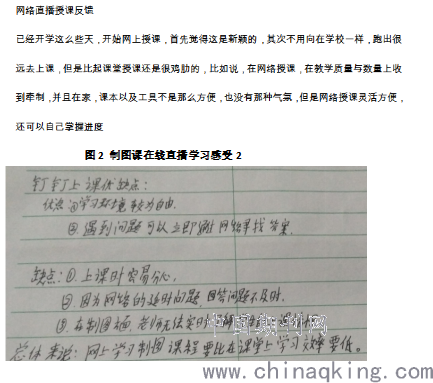 网络直播授课反馈
已经开学这么些天，开始网上授课，首先觉得这是新颖的，其次不用向在学校一样，跑出很
远去上课，但是比起课堂授课还是很鸡肋的，比如说，在网络授课，在教学质量与数量上收
到牵制，并且在家，课本以及工具不是那么方便，也没有那种气氛，但是网络授课灵活方便，
还可以自己掌握进度
图2 制图课在线直播学习感受2
钉钉上课优缺点：
优点：①学习环境较为自由.
②遇到问题可以立即通过网络寻找答案.
缺点：①上课时容易分心.
②因为网络的延时问题,回答问题不及时.
③在制图
老师无法实时
总体来说：网上学习制图课程要比在课堂上学习效率要低。
中国期刊网
www.chinaqking.com